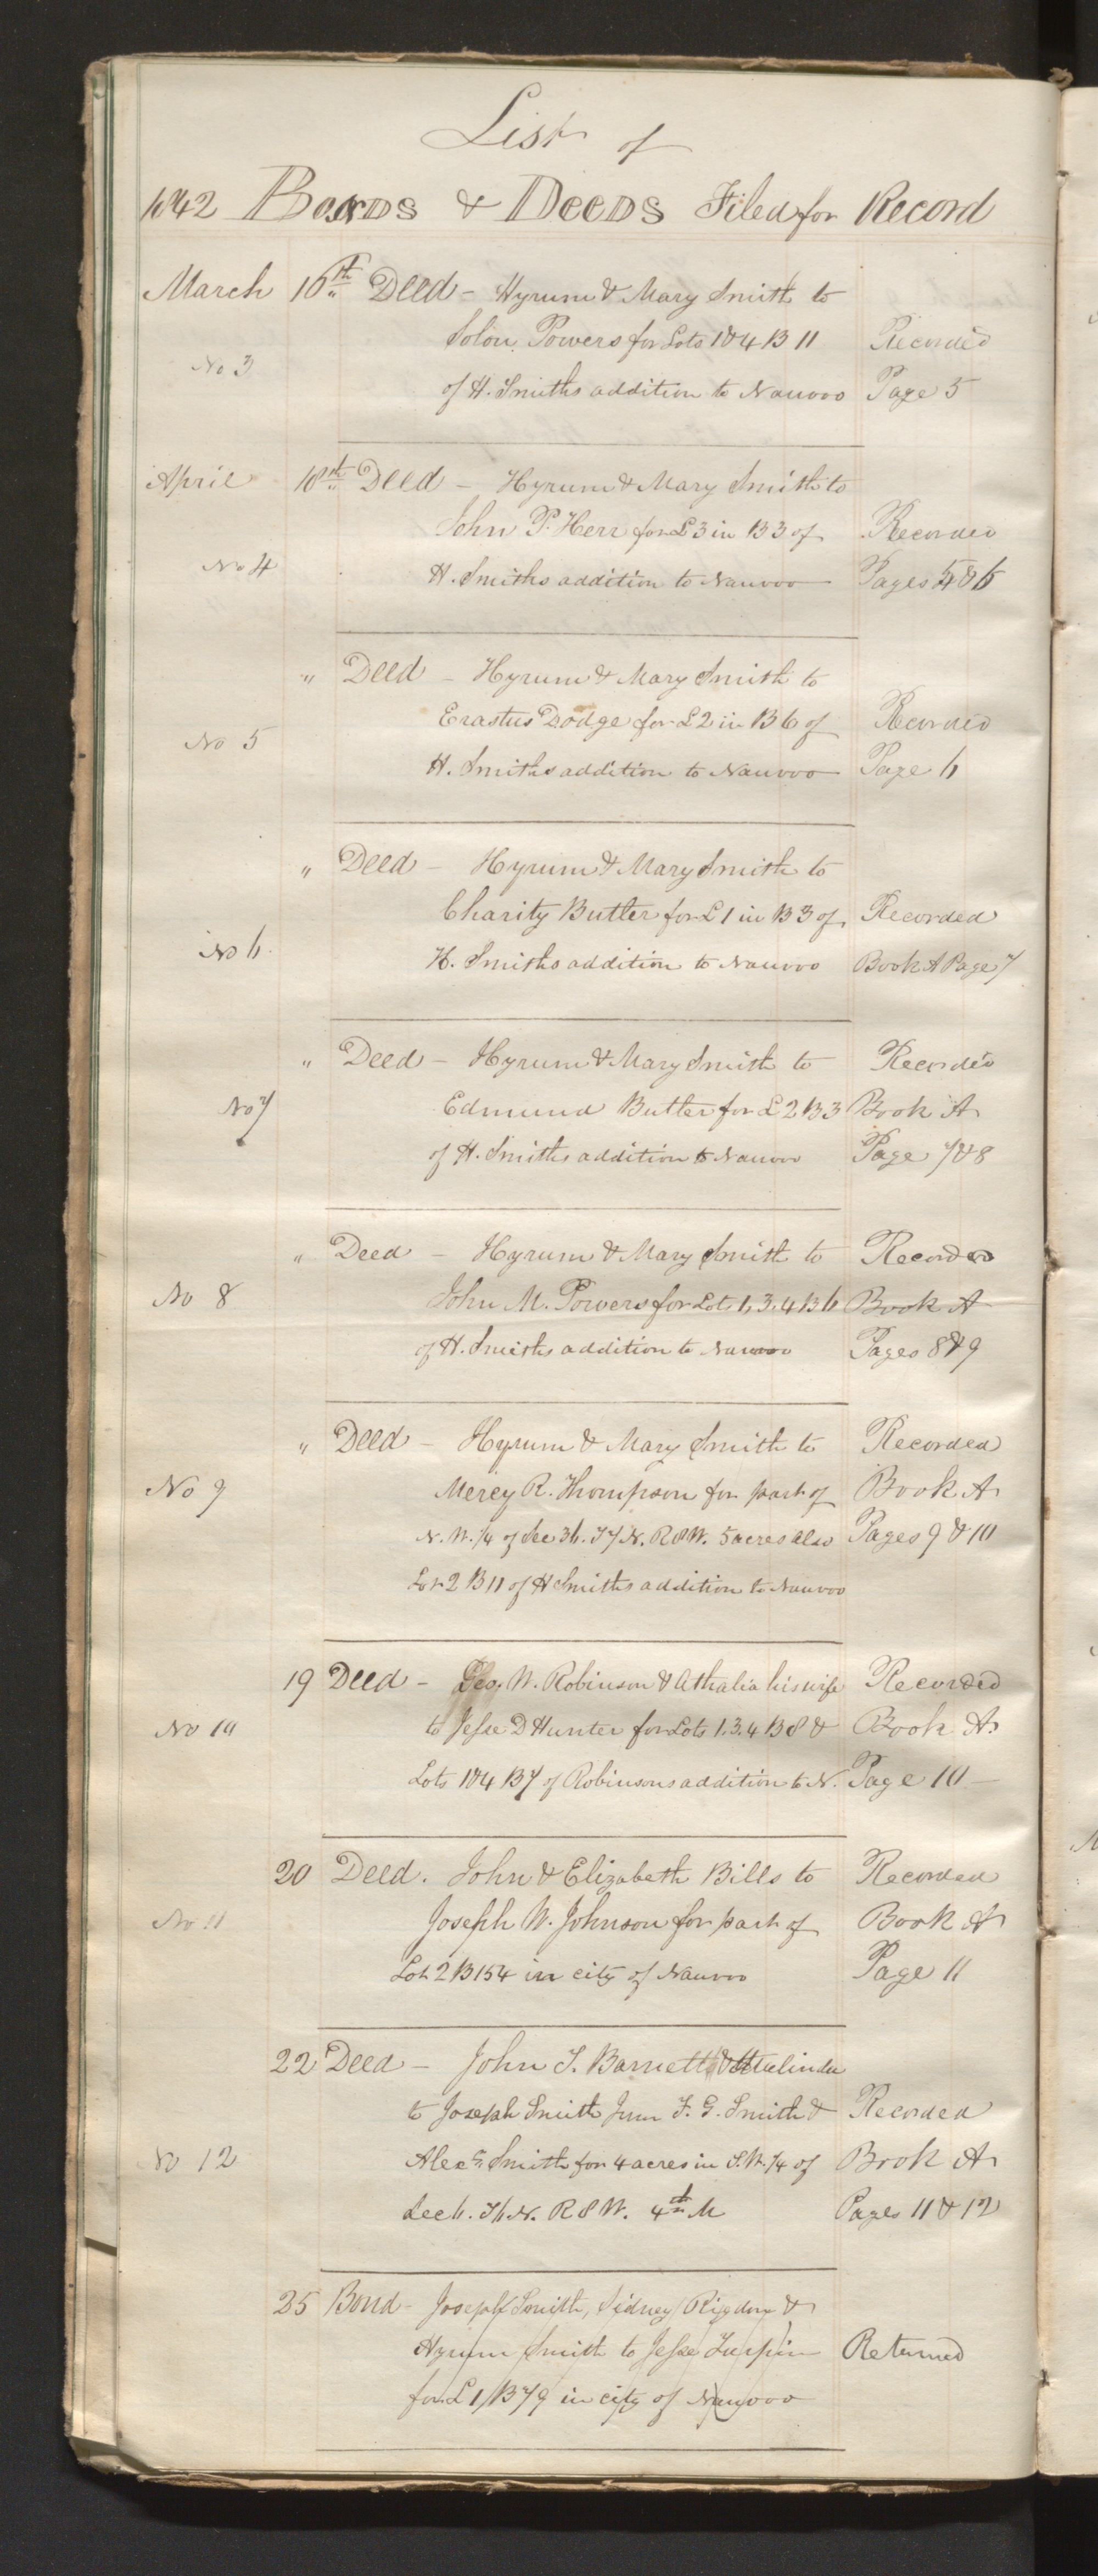 List of
1842 Bonds & Deeds Filed for Record
March 16th Deed - Hyrum & Mary Smith to
Solon Powers for Lots 1 & 4 B 11 Recorded
No 3
of H. Smiths addition to Nauvoo Page 5
April 18th Deed - Hyrum & Mary Smith to
John P. Herr for L 3 in B 3 of Recorded
No 4 H. Smiths addition to Nauvoo Pages 5 & 6
" Deed - Hyrum & Mary Smith to
Erastus Dodge for L 2 in B 6 of Recorded
No 5
H. Smiths addition to Nauvoo Page 6
" Deed - Hyrum & Mary Smith to
Charity Butler for L 1 in B 3 of Recorded
No 6 H. Smiths addition to Nauvoo Book A Page 7
" Deed - Hyrum & Mary Smith to Recorded
No 7 Edmund Butler for L 2 B 3 Book A
of H. Smiths addition to Nauvoo Page 7 & 8
" Deed - Hyrum & Mary Smith to Recorded
No 8 John M. Powers for Lot 1, 3, 4 B 6 Book A
of H. Smiths addition to Nauvoo Pages 8 & 9
" Deed - Hyrum & Mary Smith to Recorded
No 9 Mercy R. Thompson for part of Book A
N. W. 1/4 of Sec 36. T 7 N. R 8 W. 5 acres also Pages 9 & 10
Lot 2 B 11 of H Smiths addition to Nauvoo
19 Deed - Geo. W. Robinson & Athalia his wife Recorded
No 10 to Jesse D Hunter for Lots 1. 3. 4 B 8 & Book A.
Lots 1 & 4 B 7 of Robinsons addition to N. Page 10 -
20 Deed. John & Elizabeth Bills to Recorded
No 11 Joseph W. Johnson for part of Book A
Lot 2 B 154 in city of Nauvoo Page 11
22 Deed - John T. Barnett &
to Joseph Smith Junr F. G. Smith & Recorded
No 12 Alexr. Smith for 4 acres in S. W. 1/4 of Book A
Sec 6. T 6 N. R 8 W. 4th M Pages 11 & 12
25 Bond - Joseph Smith, Sidney Rigdon &
Hyrum Smith to Jesse Turpin Returned
for L 1, B 79 in city of Nauvoo